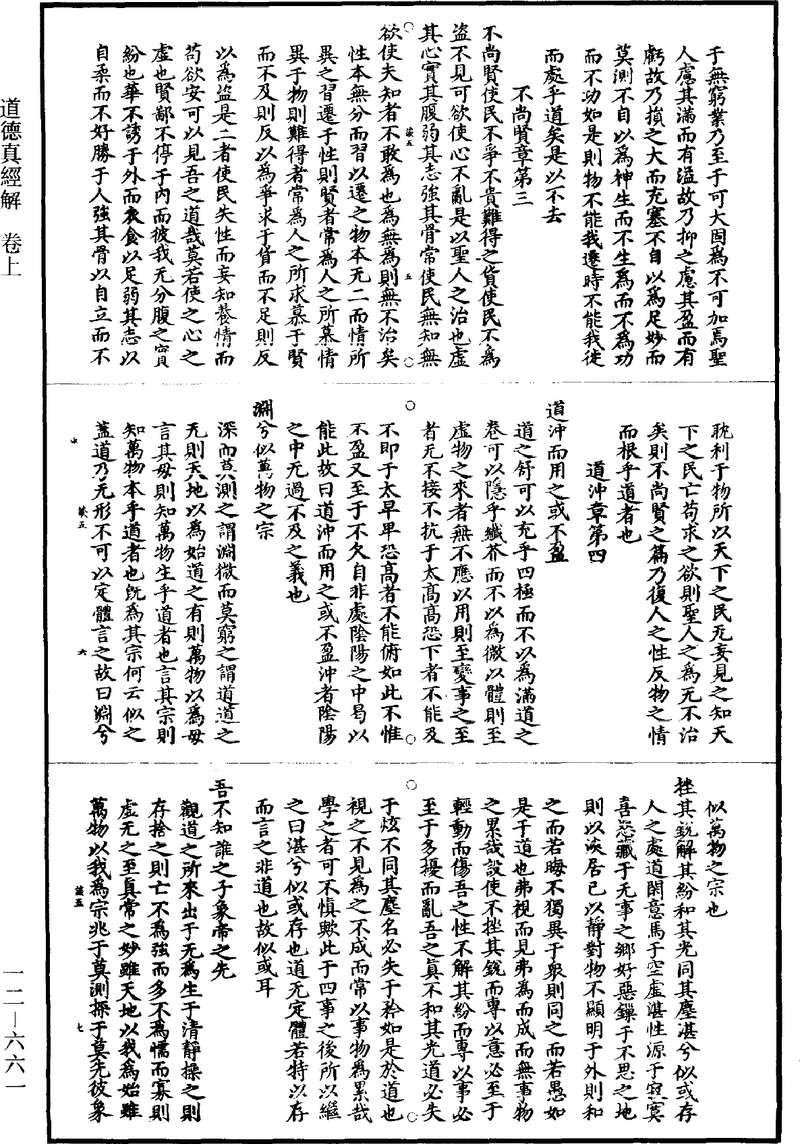 于無窮業乃至于可大固爲不可加焉聖
人慮其滿而有溢故乃抑之慮其盈而有
虧故乃損之大而充塞不自以爲足妙而
莫測不自以爲神生而不生爲而不爲功
而不功如是則物不能我遷時不能我徙
而處乎道矣是以不去
不尚賢章第三
不尚賢使民不爭不貴難得之貨使民不爲
盜不見可欲使心不亂是以聖人之治也虛
其心實其腹弱其志強其骨常使民無知無
欲使夫知者不敢爲也爲無爲則無不治矣
性本無分而習以遷之物本无二而情所
異之習遷于性則賢者常爲人之所慕情
異于物則難得者常爲人之所求慕于賢
而不及則反以為爭求于貨而不足則反
以為盜是二者使民失性而妄知養情而
苟欲安可以見吾之道哉莫若使之心之
虛也賢鄙不停于內而彼我无分腹之實
紛也華不誘于外而衣食以足弱其志以
自柔而不好勝于人強其骨以自立而不
耽利于物所以天下之民无妄見之知天
下之民亡苟求之欲則聖人之爲无不治
矣則不尚賢之篇乃復人之性反物之情
而根乎道者也
道沖章第四
道沖而用之或不盈
道之舒可以充乎四極而不以爲滿道之
卷可以隱乎纖芥而不以爲微以體則至
虛物之來者無不應以用則至變事之至
者无不接不抗于太高高恐下者不能及
不即于太早卑恐高者不能俯如此不惟
不盈又至于不欠自非處陰陽之中曷以
能此故曰道沖而用之或不盈沖者陰陽
之中无過不及之義也
淵兮似萬物之宗
深而莫測之謂淵微而莫窮之謂道道之
无則天地以爲始道之有則萬物以爲母
言其母則知萬物生乎道者也言其宗則
知萬物本乎道者也旣為其宗何云似之
蓋道乃无形不可以定體言之故曰淵兮
似萬物之宗也
挫其銳解其紛和其光同其塵湛兮似或存
人之處道閑意馬于空虛湛性源于寂寞
喜怒藏于无事之鄉好惡鏁于不思之地
則以淡居己以靜對物不顯明于外則和
之而若晦不獨異于衆則同之而若愚如
是于道也弗視而見弗為而成而無事物
之累哉設使不挫其銳而專以意必至于
輕動而傷吾之性不解其紛而專以事必
至于多擾而亂吾之眞不和其光道必失
于炫不同其塵名必失于矜如是於道也
視之不見為之不成而常以事物為累哉
學之者可不慎歟此于四事之後所以繼
之曰湛兮似或存也道无定體若特以存
而言之非道也故似或耳
吾不知誰之子象帝之先
觀道之所來出于无為生于清靜操之則
存捨之則亡不為強而多不為懦而寡則
虛无之至真常之妙雖天地以我為始雖
萬物以我為宗兆于莫測探于莫先彼象
道德真經解　卷上
一二—六六一